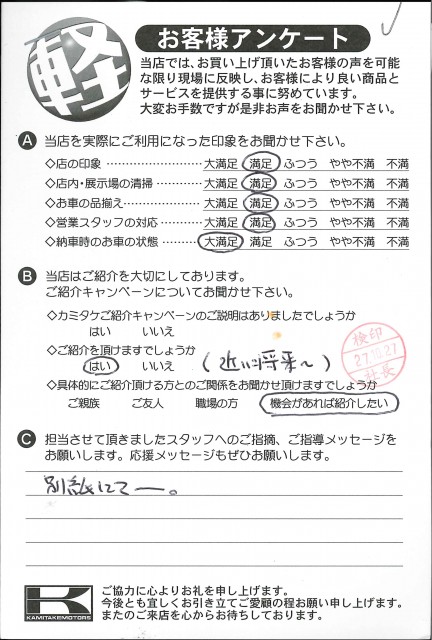 軽
お客様アンケート
当店では、お買い上げ頂いたお客様の声を可能
な限り現場に反映し、お客様により良い商品と
サービスを提供する事に努めています。
大変お手数ですが是非お声をお聞かせ下さい。
A 当店を実際にご利用になった印象をお聞かせ下さい。
◇店の印象 ………………… 大満足 満足 ふつう やや不満 不満
◇店内・展示場の清掃………… 大満足 満足 ふつう やや不満 不満
◇お車の品揃え………………… 大満足 満足 ふつう やや不満 不満
◇営業スタッフの対応 ………… 大満足 満足 ふつう やや不満 不満
◇納車時のお車の状態 ………… 大満足 満足 ふつう やや不満 不満
B 当店はご紹介を大切にしております。
ご紹介キャンペーンについてお聞かせ下さい。
◇カミタケご紹介キャンペーンのご説明はありましたでしょうか
はい いいえ
◇ご紹介を頂けますでしょうか
はい いいえ (近い将来〜)
検印
27.10.27
社長
◇具体的にご紹介頂ける方とのご関係をお聞かせ頂けますでしょうか
ご親族 ご友人 職場の方 機会があれば紹介したい
C 担当させて頂きましたスタッフへのご指摘、ご指導メッセージを
お願いします。応援メッセージもぜひお願いします。
別紙にてー。
K
KAMITAKEMOTORS
ご協力に心よりお礼を申し上げます。
今後とも宜しくお引き立てご愛顧の程お願い申し上げます。
またのご来店を心からお待ちしております。